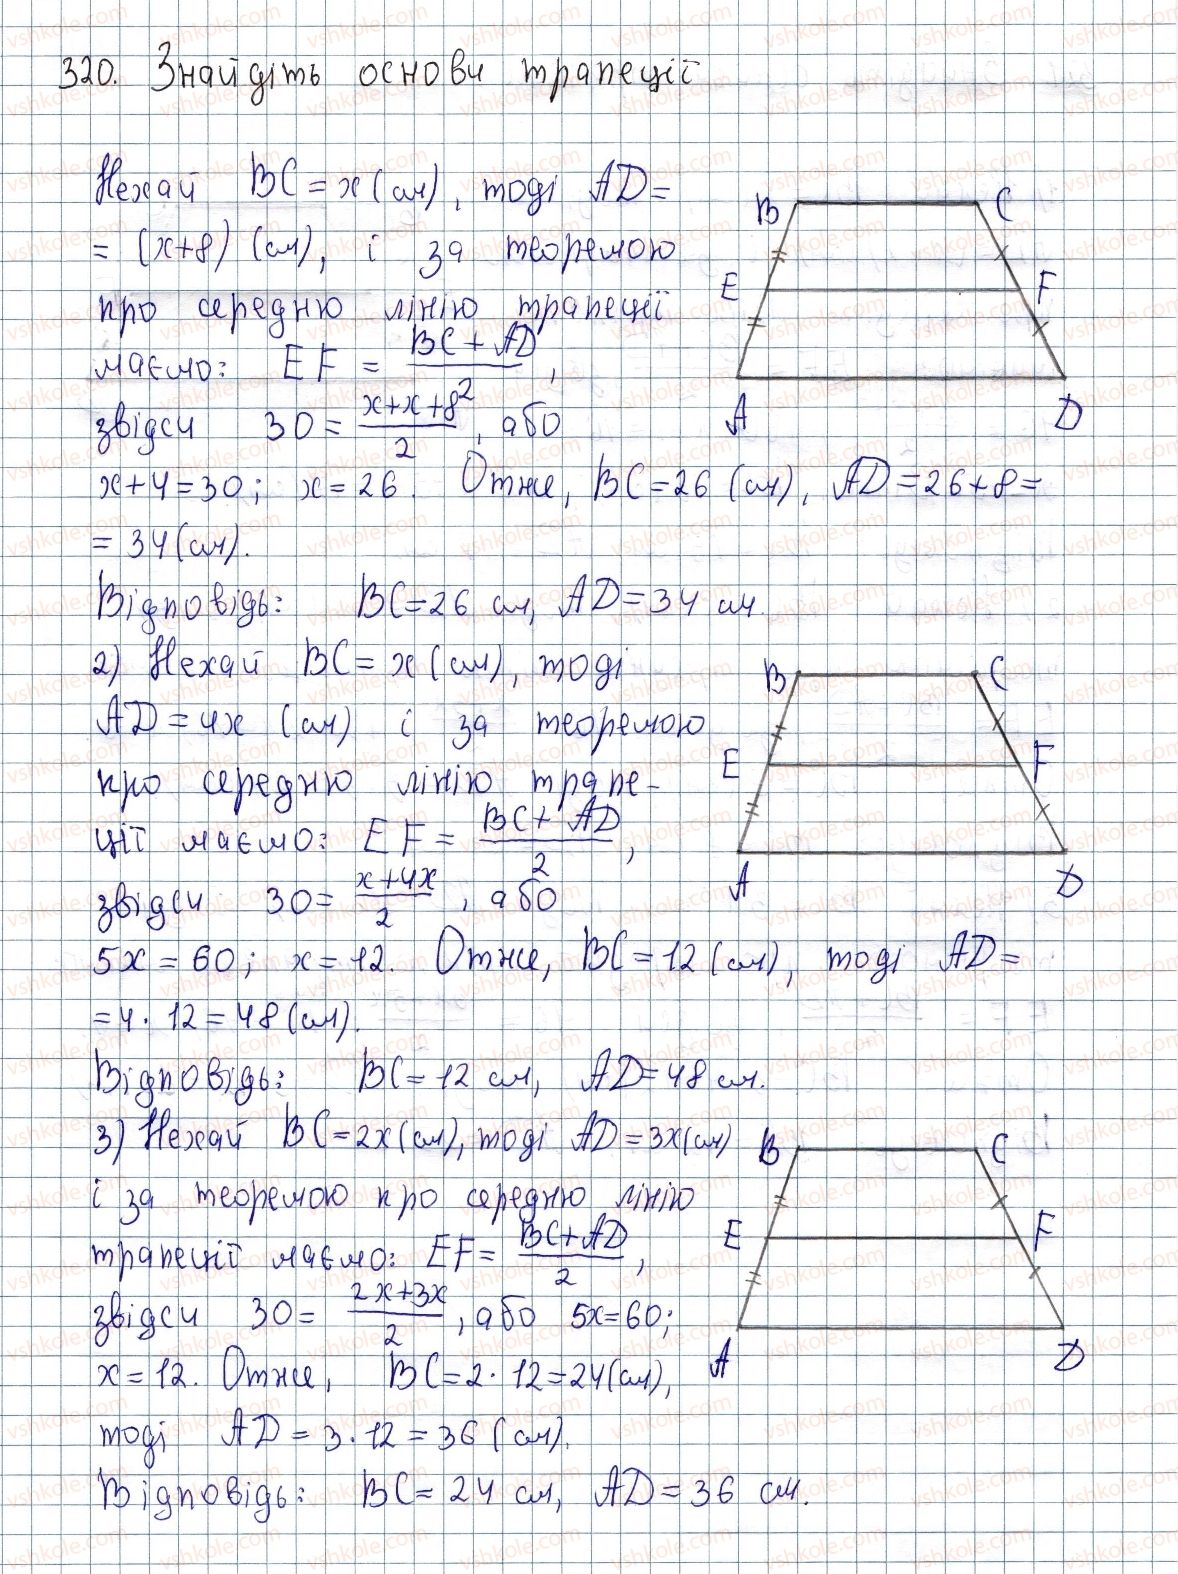 320. Знайдіть основи трапеції
Нехай BC = x (см), тоді AD =
= (x+8) (см), і за теоремою
про середню лінію трапеції
маємо: EF = (BC + AD)/2,
звідси 30 = (x+x+8)/2, або
x+4=30; x=26. Отже, BC=26 (см), AD=26+8=
= 34 (см).
Відповідь: BC=26 см, AD=34 см.
2) Нехай BC = x (см), тоді
AD = 4x (см) і за теоремою
про середню лінію трапе-
ції маємо: EF = (BC + AD)/2,
звідси 30 = (x+4x)/2, або
5x = 60; x = 12. Отже, BC = 12 (см), тоді AD =
= 4 · 12 = 48 (см).
Відповідь: BC = 12 см, AD = 48 см.
3) Нехай BC = 2x (см), тоді AD = 3x (см)
і за теоремою про середню лінію
трапеції маємо: EF = (BC + AD)/2,
звідси 30 = (2x+3x)/2, або 5x=60;
x = 12. Отже, BC = 2 · 12 = 24 (см),
тоді AD = 3 · 12 = 36 (см).
Відповідь: BC = 24 см, AD = 36 см.
B C
E F
A D
B C
E F
A D
B C
E F
A D
vshkole.com